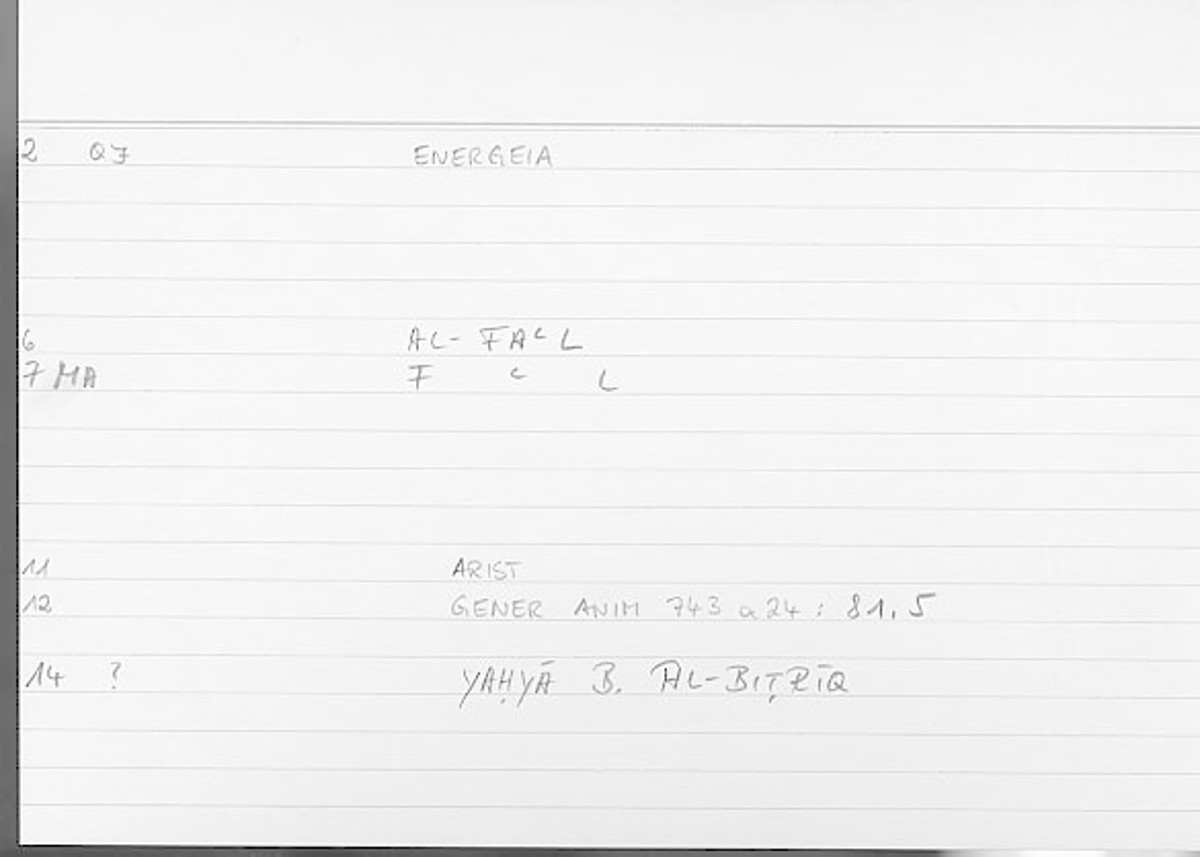 2 QF ENERGEIA
6 AL-FAʿL
7 MA F ʿ L
11 ARIST
12 GENER ANIM 743 a 24 : 81.5
14 ? YAḤYĀ B. AL-BIṬRĪQ